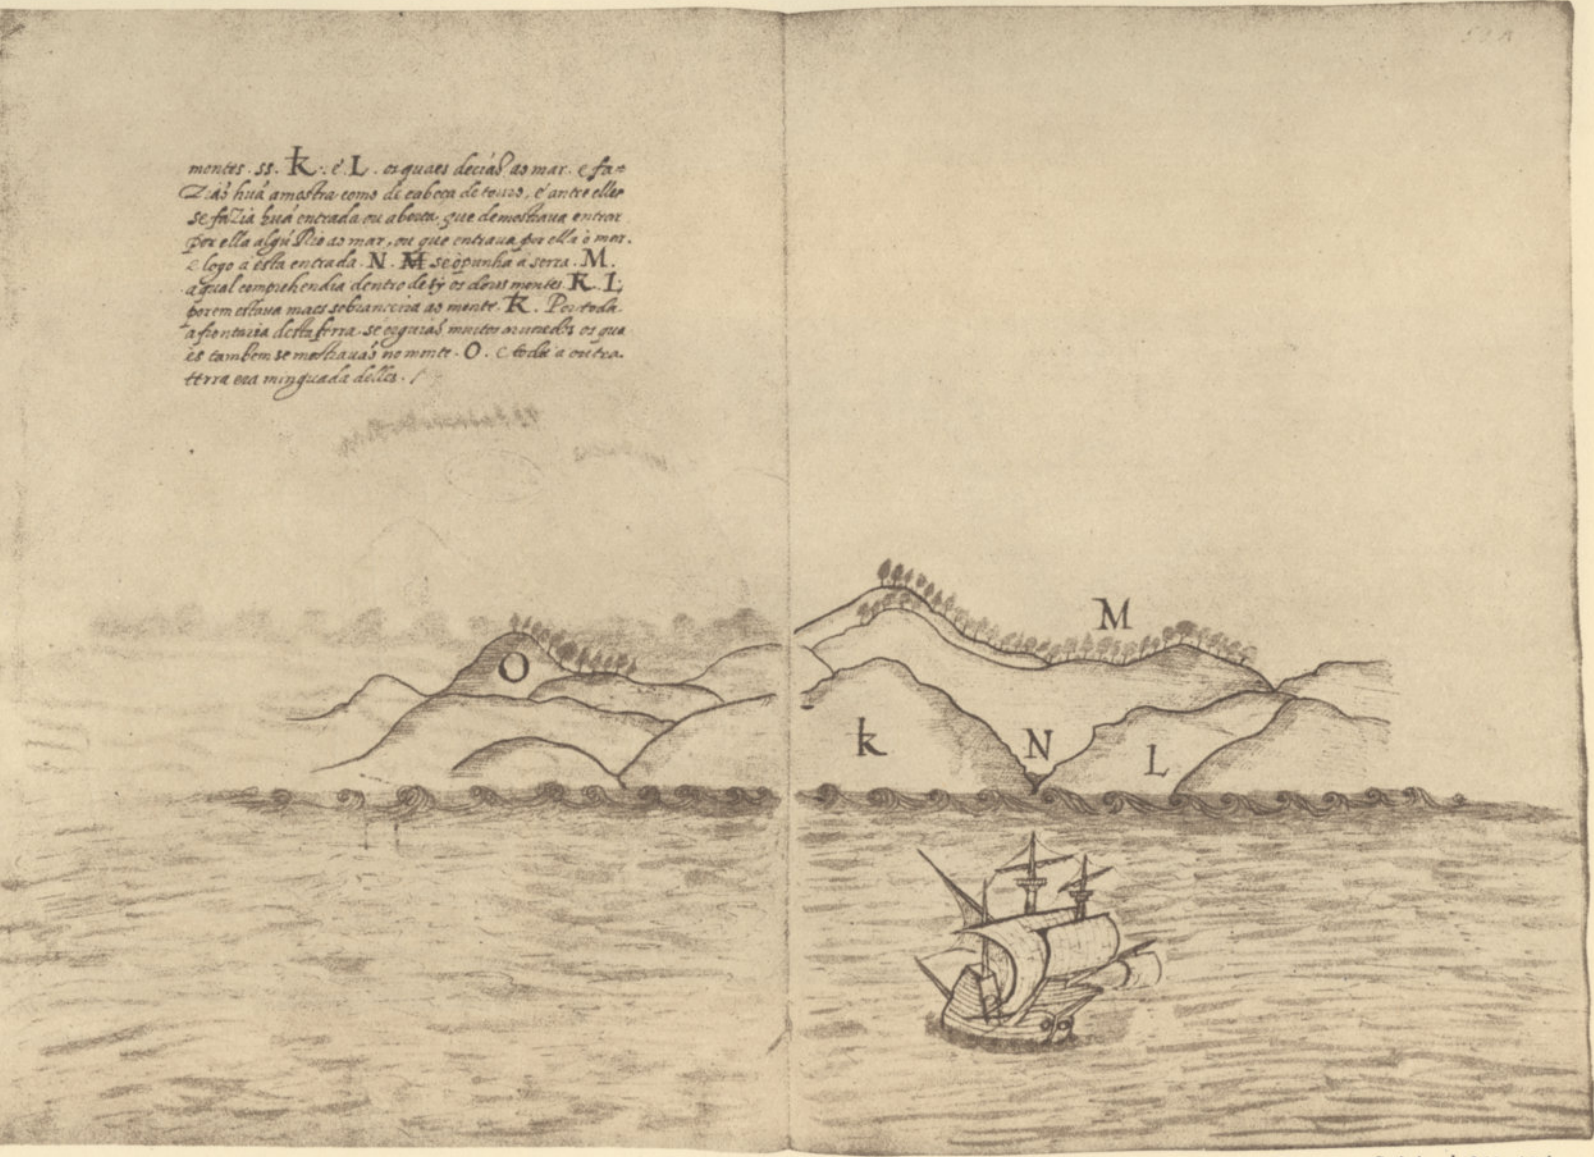 montes . ss . K . e L . os quaes deciaõ ao mar . e fa=
ziaõ huã amostra como de cabeça de touro, e antre elles
se fazia huã entrada ou aberta, que demostraua entrar
por ella algũ Rio ao mar, ou que entraua por ella o mar.
e logo a esta entrada . N . M se opunha a serra . M .
a qual comprehendia dentro de sy os dous montes . K . L .
porem estaua mais sobranceira ao monte . K . Por toda
a frontaria desta serra se erguiaõ muitos aruoredos os qua
es tambem se mostrauaõ no monte . O . e toda a outra
terra era minguada delles . /
M
O
k
N
L